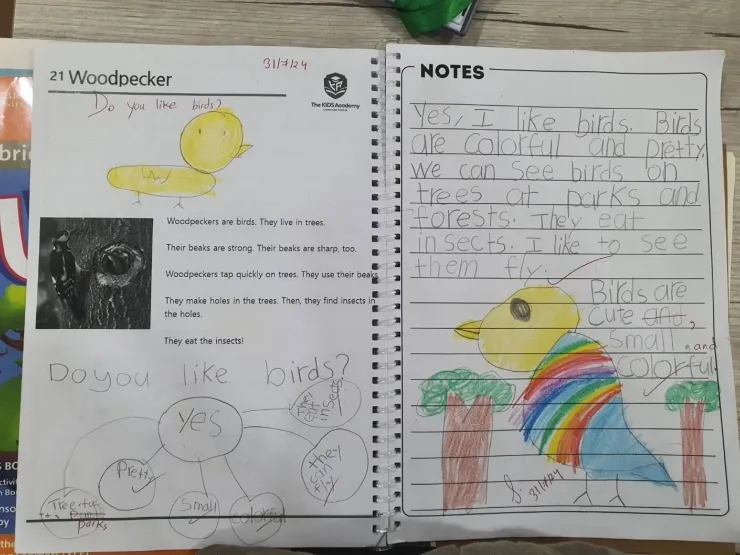 21 Woodpecker
31/7/24
The KIDS Academy
Do you like birds?
Woodpeckers are birds. They live in trees.
Their beaks are strong. Their beaks are sharp, too.
Woodpeckers tap quickly on trees. They use their beaks
They make holes in the trees. Then, they find insects in
the holes.
They eat the insects!
Do you like birds?
yes
They
eat
insects
they
can
fly
Pretty
Small
colorful
parks
NOTES
Yes, I like birds. Birds
are colorful and pretty.
We can see birds on
trees at parks and
forests. They eat
insects. I like to see
them fly.
Birds are
cute and,
small and
colorful